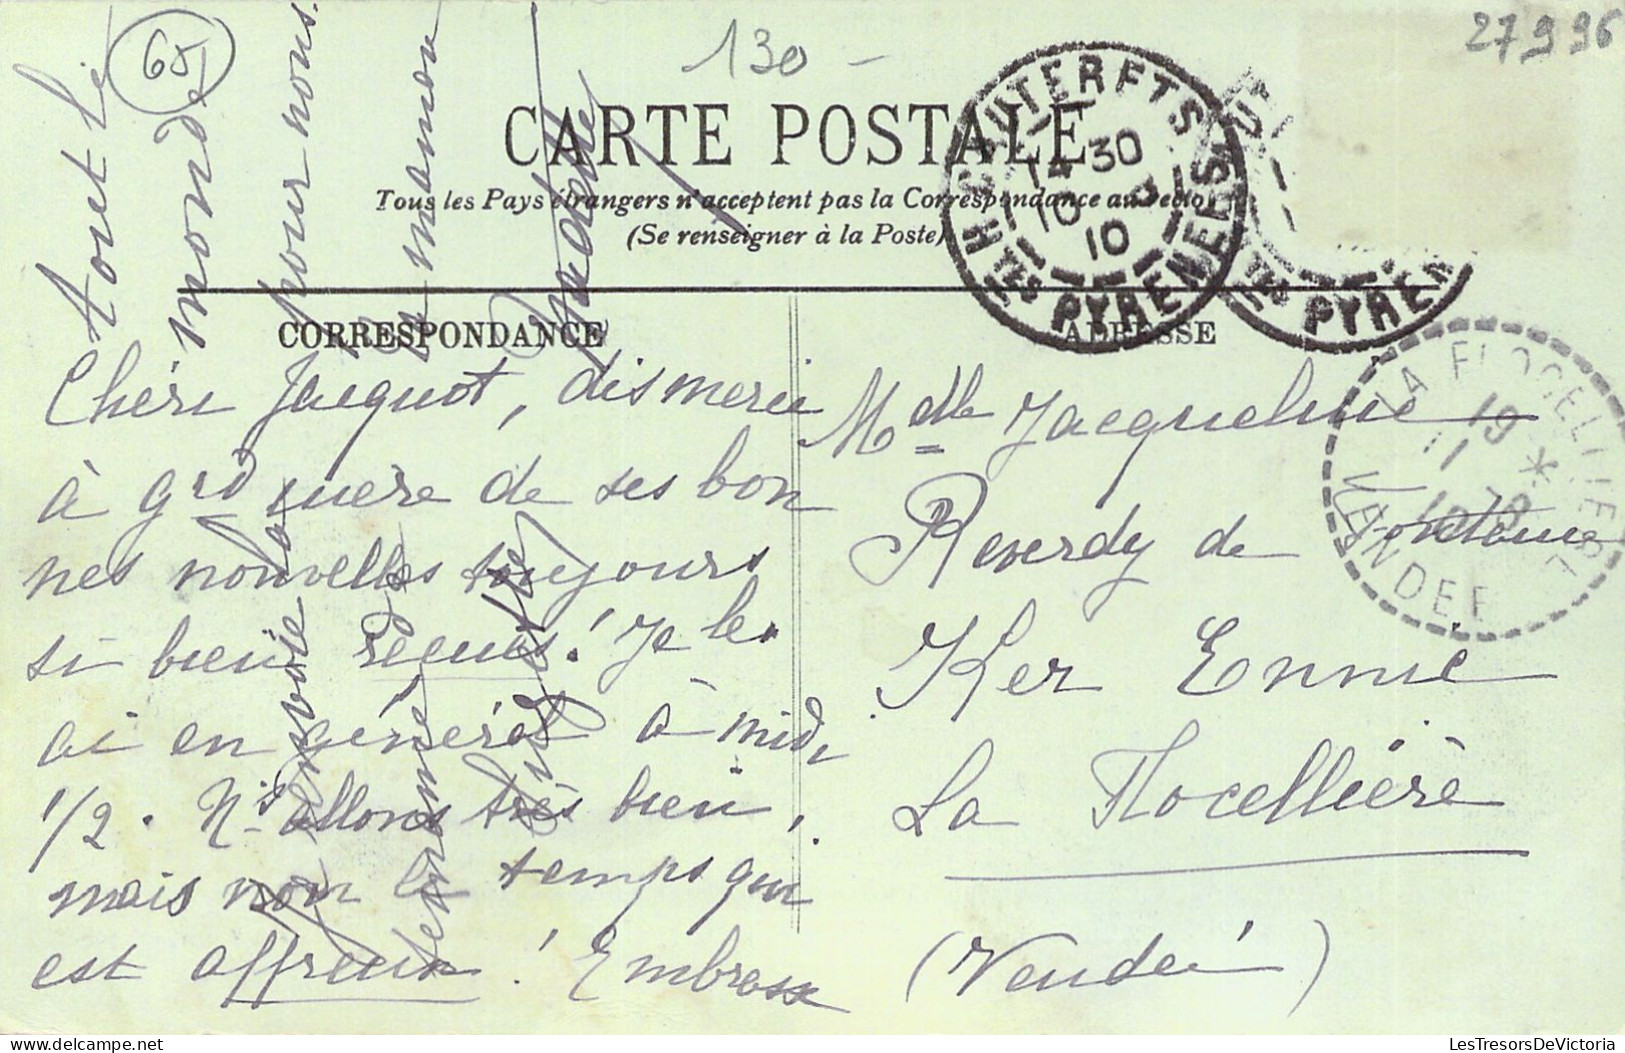 68
130 -
27 9 96
CARTE POSTALE
Tous les Pays étrangers n'acceptent pas la Correspondance au recto
(Se renseigner à la Poste)
CAUTERETS
14 30
10
10
HTES PYRENEES
TES PYREN
CORRESPONDANCE
ADRESSE
LA FLOCELLIERE
19 *
11
10
VENDEE
Chère Jacquot, dis merci
à grd mère de ses bon
nes nouvelles toujours
si bien reçues! Je les
ai en général à midi
1/2. Ns allons très bien,
mais non le temps qui
est affreux! Embrasse
tout le
monde
pour nous.
ta maman
Mdlle Jacqueline
Reverdy de
Ker Ennie
La Flocellière
(Vendée)
LesTresorsDeVictoria
www.delcampe.net